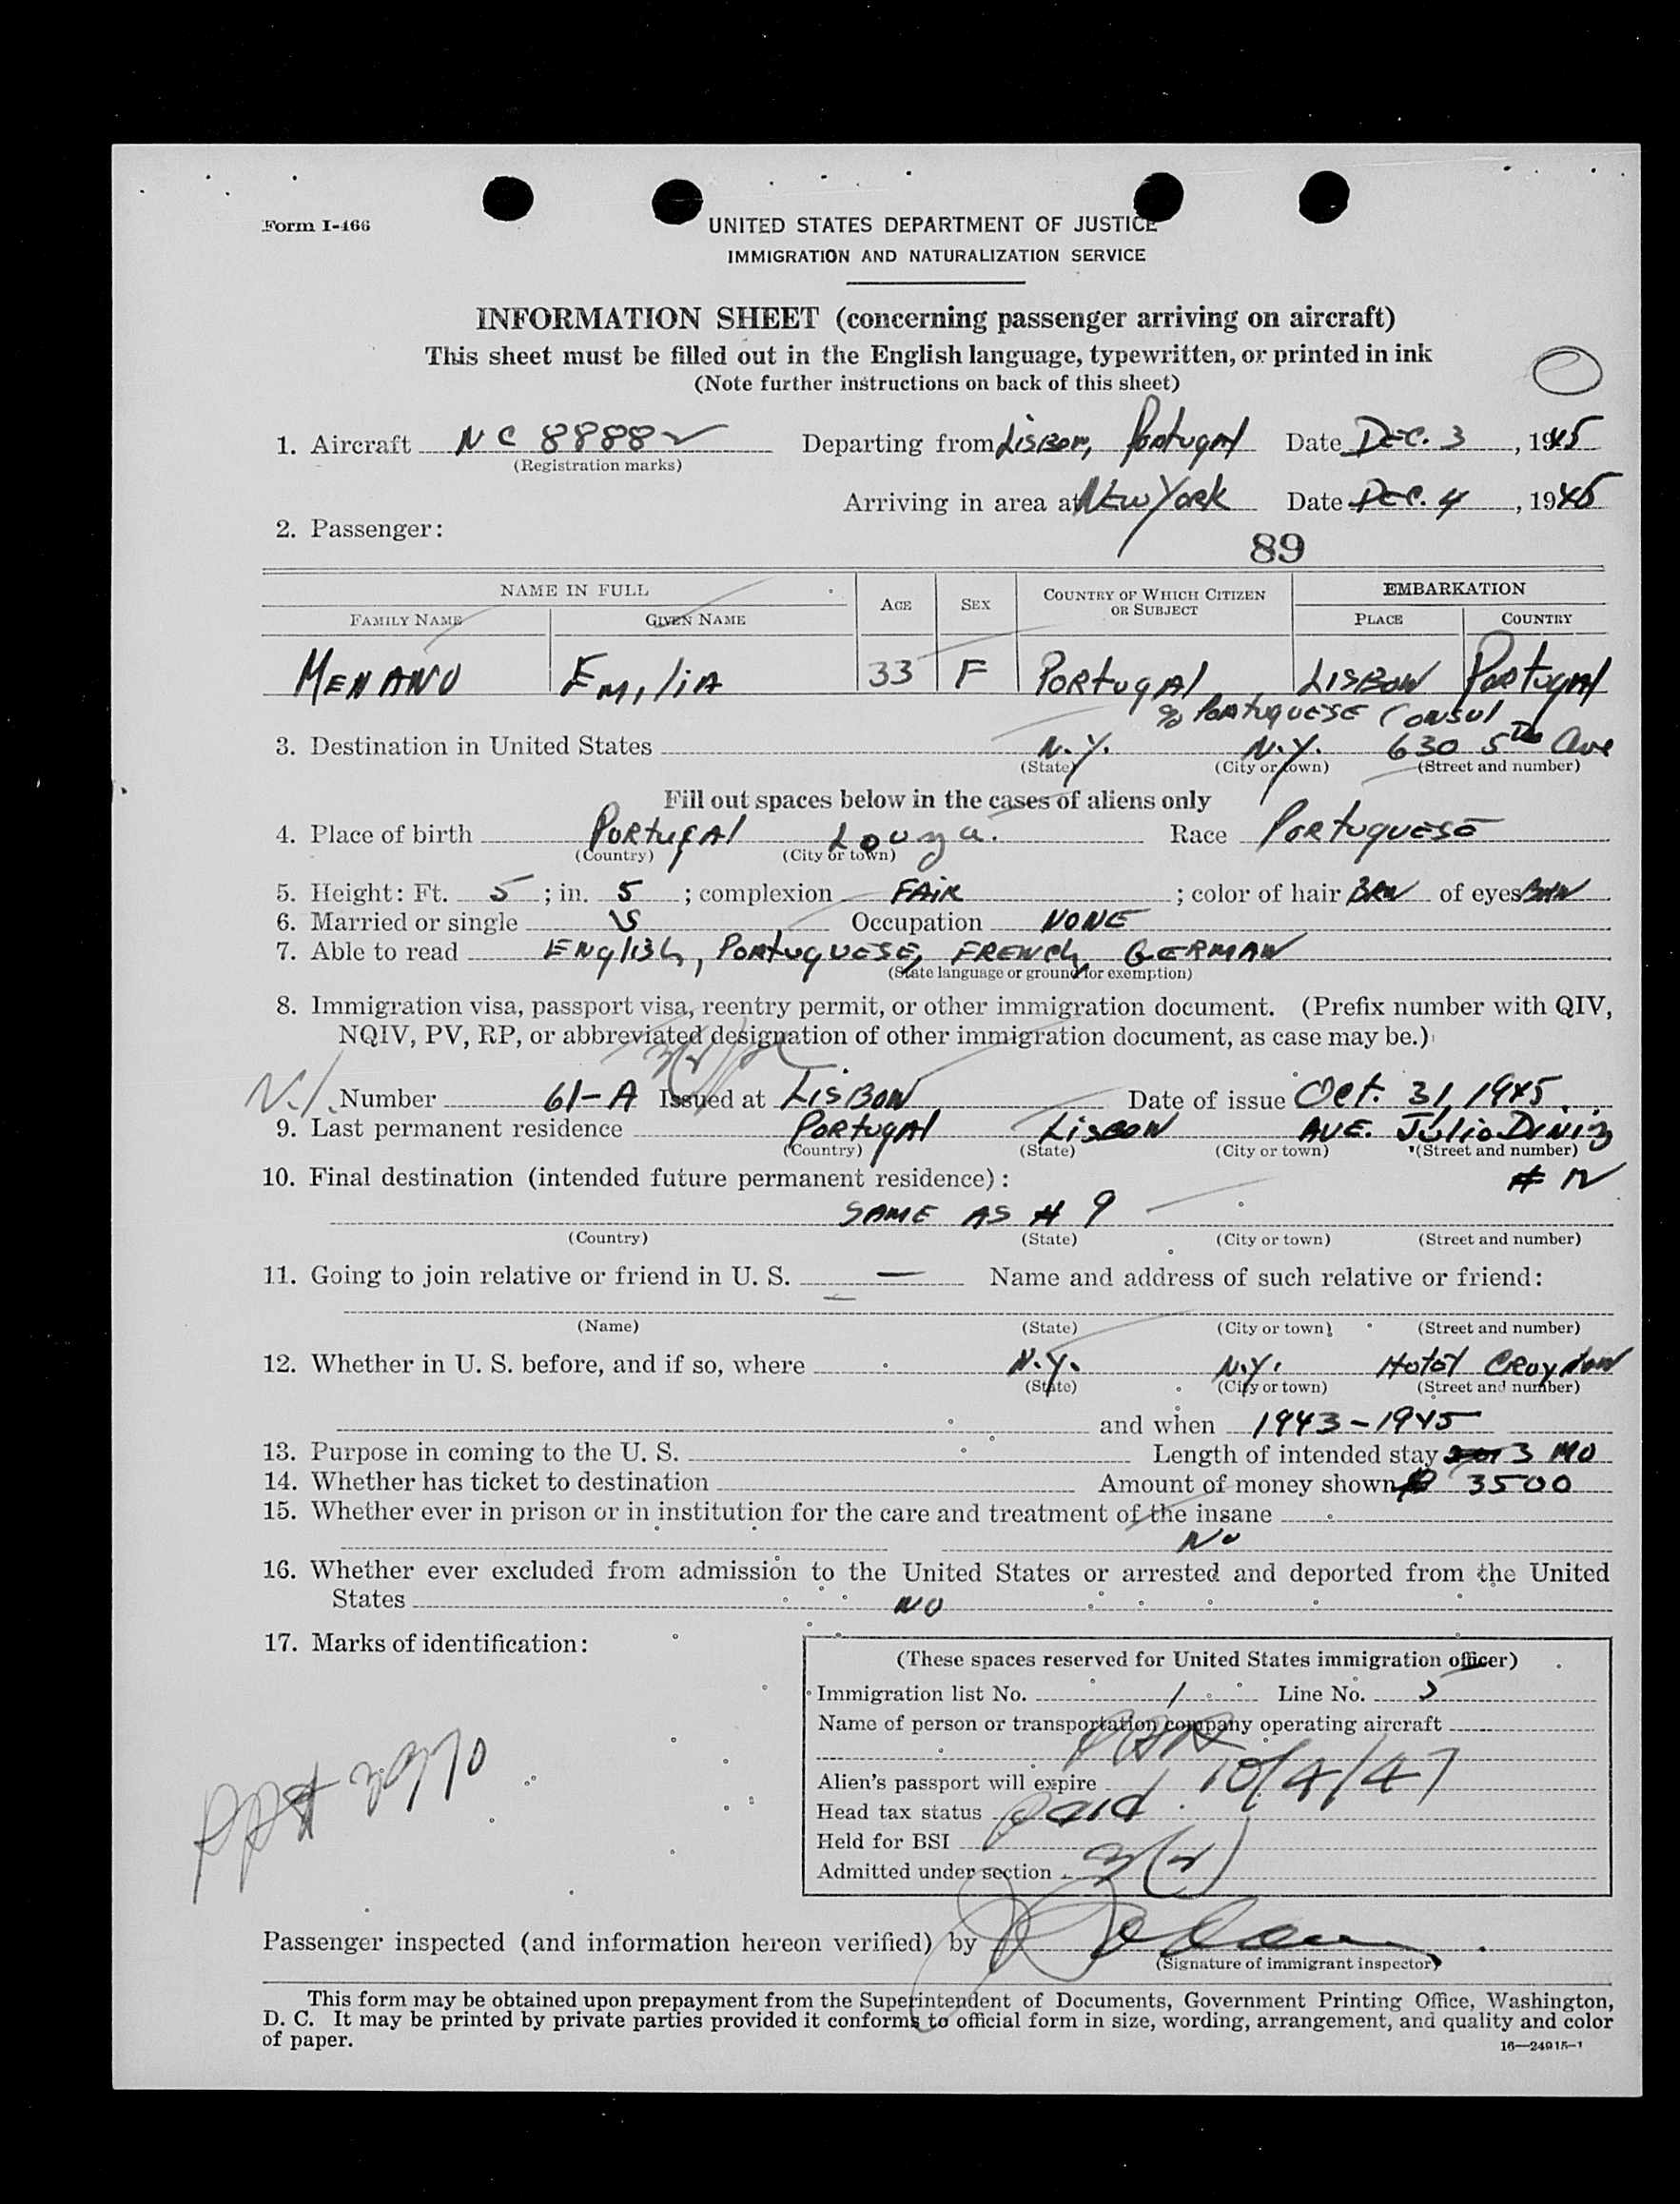 Form I-466
UNITED STATES DEPARTMENT OF JUSTICE
IMMIGRATION AND NATURALIZATION SERVICE
INFORMATION SHEET (concerning passenger arriving on aircraft)
This sheet must be filled out in the English language, typewritten, or printed in ink
(Note further instructions on back of this sheet)
1. Aircraft NC 8888 Departing from Lisbon, Portugal Date Dec. 3, 1945
(Registration marks)
Arriving in area at New York Date Dec. 4, 1945
2. Passenger:
89
NAME IN FULL AGE SEX COUNTRY OF WHICH CITIZEN OR SUBJECT EMBARKATION
FAMILY NAME GIVEN NAME PLACE COUNTRY
MENANO EMILIA 33 F PORTUGAL LISBON PORTUGAL
c/o PORTUGUESE CONSUL
3. Destination in United States N.Y. N.Y. 630 5th Ave
(State) (City or town) (Street and number)
Fill out spaces below in the cases of aliens only
4. Place of birth PORTUGAL Louza. Race PORTUGUESE
(Country) (City or town)
5. Height: Ft. 5; in. 5; complexion FAIR; color of hair BRN of eyes BRN
6. Married or single S Occupation NONE
7. Able to read ENGLISH, PORTUGUESE, FRENCH, GERMAN
(State language or ground for exemption)
8. Immigration visa, passport visa, reentry permit, or other immigration document. (Prefix number with QIV,
NQIV, PV, RP, or abbreviated designation of other immigration document, as case may be.)
Number 61-A Issued at LISBON Date of issue Oct. 31, 1945.
9. Last permanent residence PORTUGAL LISBON AVE. Julio Diniz
(Country) (State) (City or town) (Street and number)
10. Final destination (intended future permanent residence):
SAME AS # 9
(Country) (State) (City or town) (Street and number)
11. Going to join relative or friend in U. S. — Name and address of such relative or friend:
(Name) (State) (City or town) (Street and number)
12. Whether in U. S. before, and if so, where N.Y. N.Y. Hotel Croydon
(State) (City or town) (Street and number)
and when 1943-1945
13. Purpose in coming to the U. S. Length of intended stay 3 MO
14. Whether has ticket to destination Amount of money shown $ 3500
15. Whether ever in prison or in institution for the care and treatment of the insane
No
16. Whether ever excluded from admission to the United States or arrested and deported from the United
States NO
17. Marks of identification:
(These spaces reserved for United States immigration officer)
Immigration list No. 1 Line No.
Name of person or transportation company operating aircraft
Alien's passport will expire 10/4/47
Head tax status paid
Held for BSI
Admitted under section 3(2)
Passenger inspected (and information hereon verified) by
(Signature of immigrant inspector)
This form may be obtained upon prepayment from the Superintendent of Documents, Government Printing Office, Washington,
D. C. It may be printed by private parties provided it conforms to official form in size, wording, arrangement, and quality and color
of paper.
16—24915-1